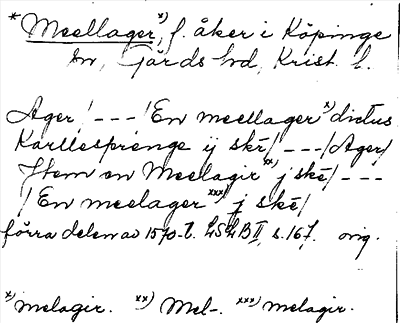 * Meellager, x) f. åker i Köpinge
sn, Gärds hd, Krist. l.
Ager, / - - - / En meellager x) dictus
Karllesprenge ij skē / - - - / Ager /
Item en Meelagir xx) j skē / - - -
/ En meelager xxx) j skē /
förra delen av 1570-t. LSLB II, s. 167. orig.
x) melagir. xx) Mel-. xxx) melagir.